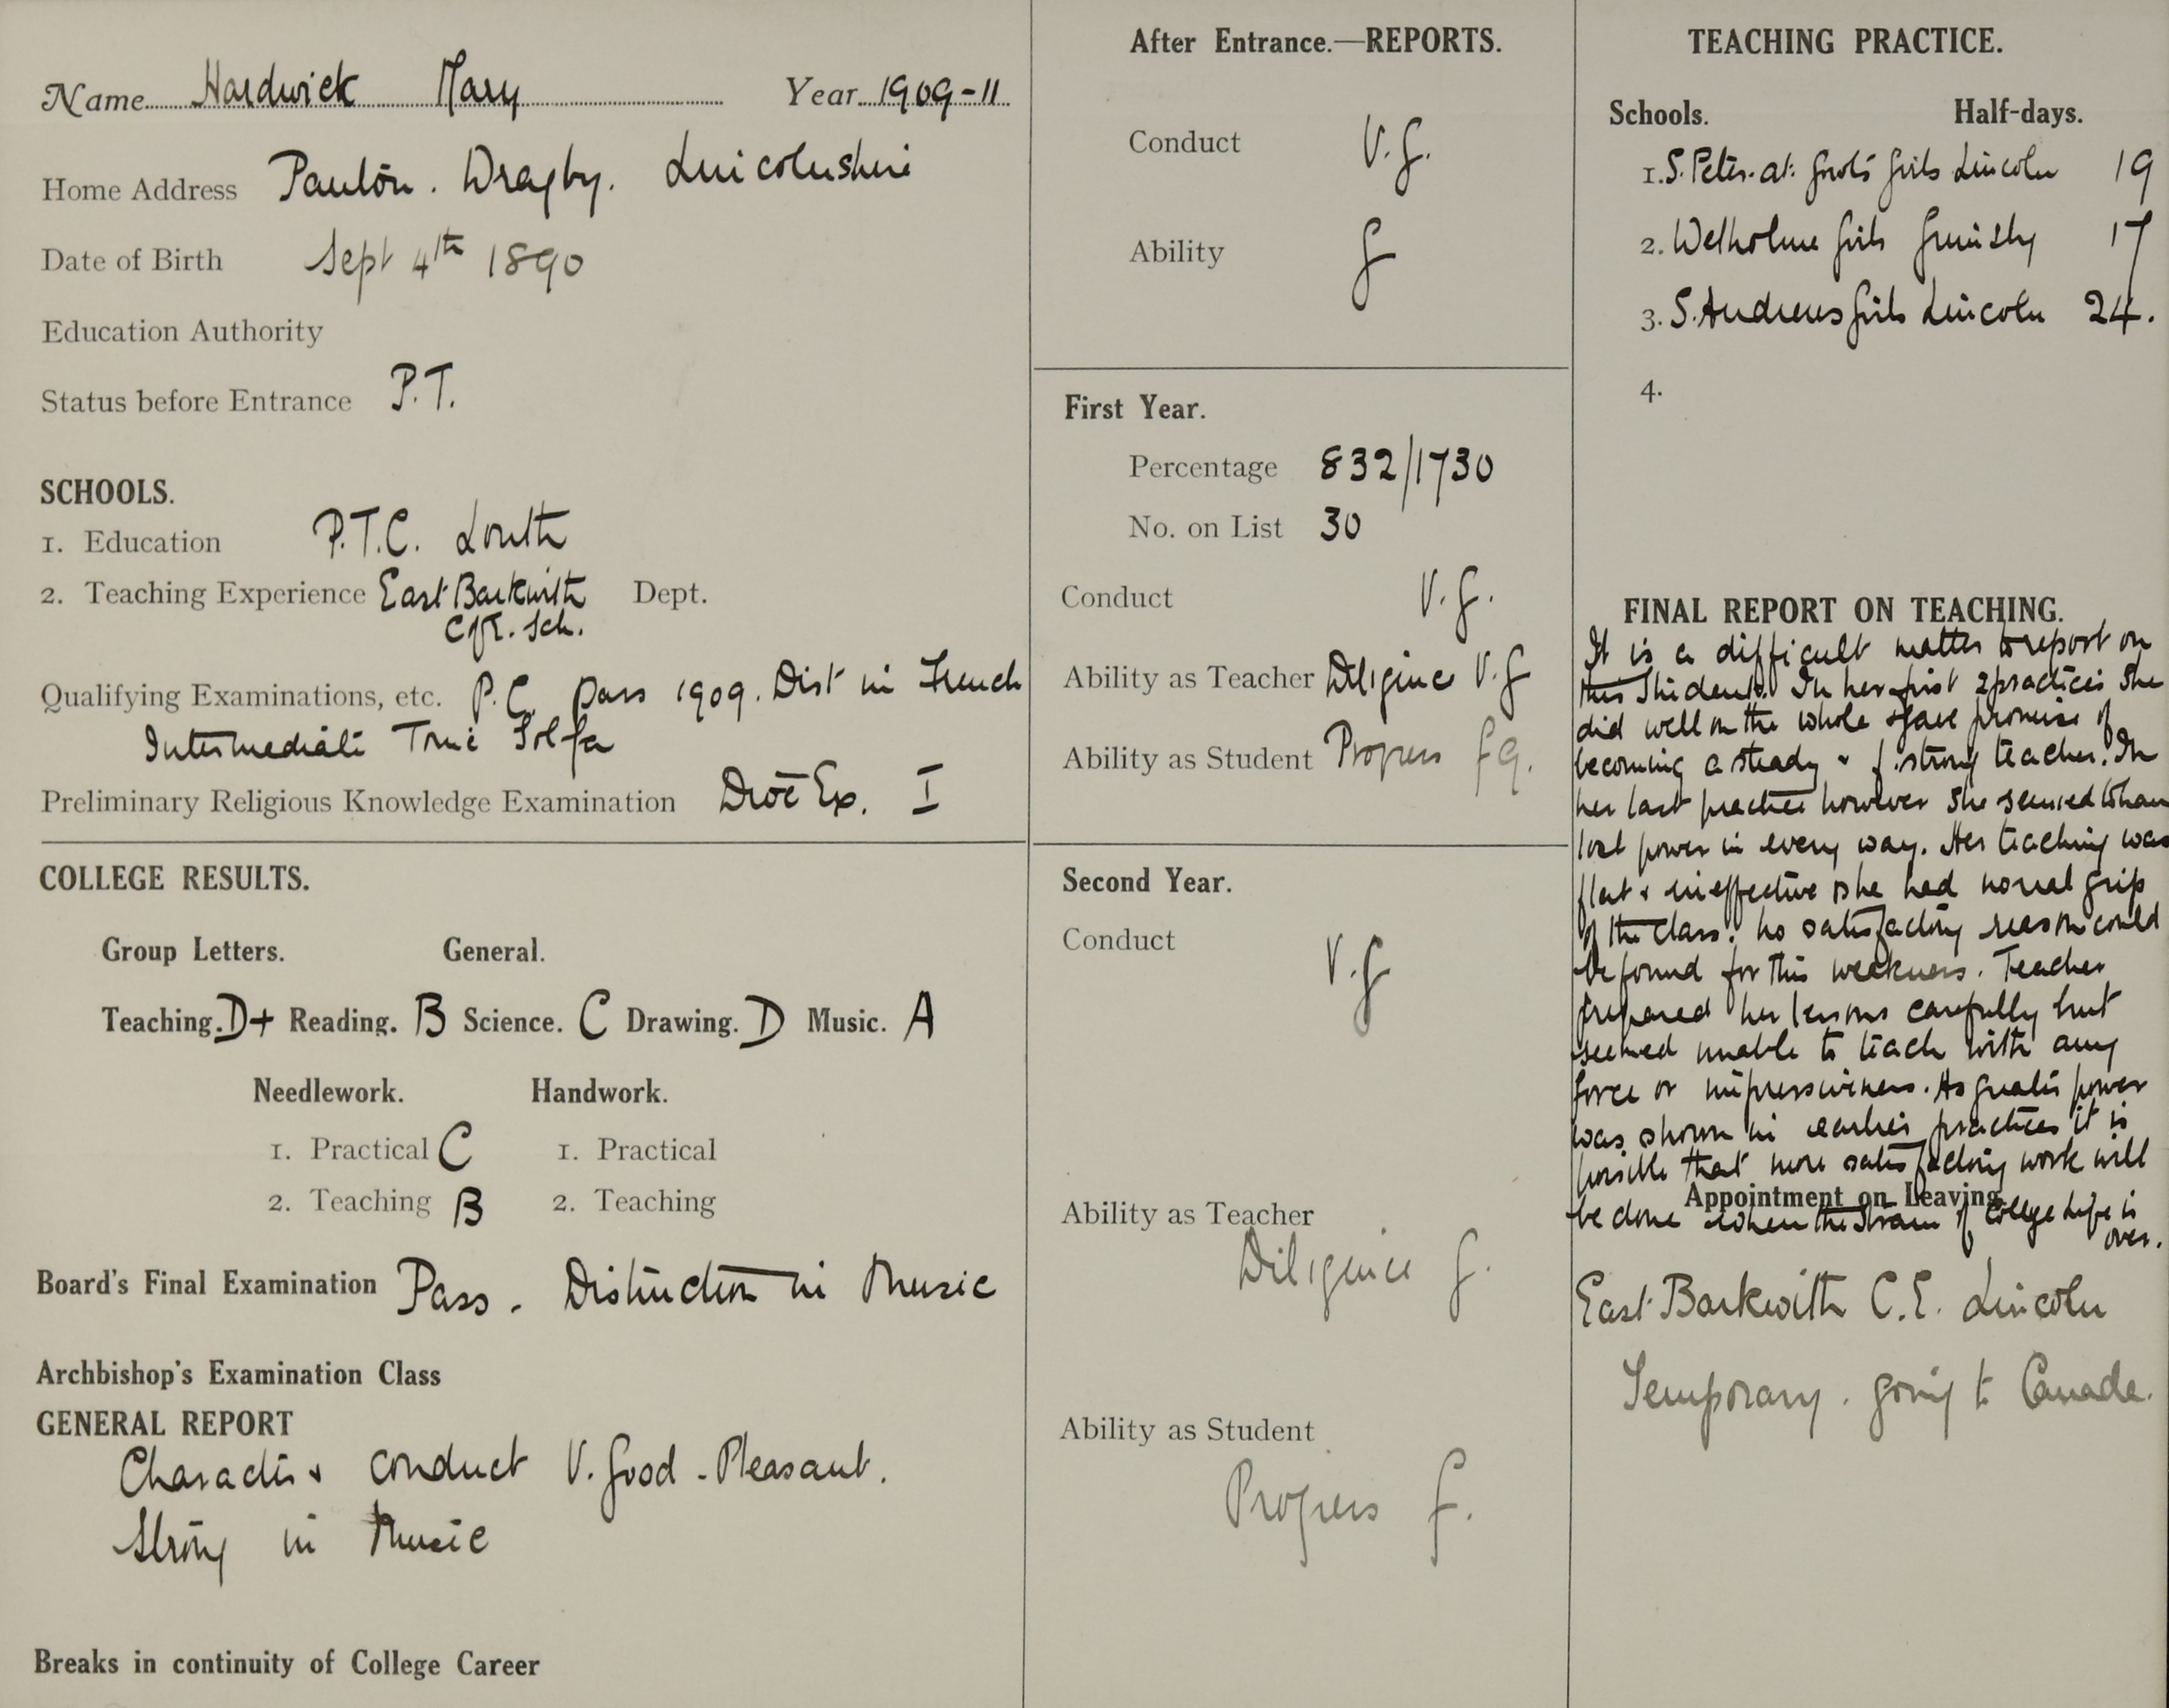 Name Hardwick Mary Year 1909-11
Home Address Panton. Wragby. Lincolnshire
Date of Birth Sept 4th 1890
Education Authority
Status before Entrance P.T.
SCHOOLS.
1. Education P.T.C. Louth
2. Teaching Experience East Barkwith Dept.
Sch.
Qualifying Examinations, etc. P.C. pass 1909. Dist in French
Intermediate Tonic Solfa
Preliminary Religious Knowledge Examination Dioc Ex. I
COLLEGE RESULTS.
Group Letters. General.
Teaching. D+ Reading. B Science. C Drawing. D Music. A
Needlework. Handwork.
1. Practical C 1. Practical
2. Teaching B 2. Teaching
Board's Final Examination Pass. Distinction in Music
Archbishop's Examination Class
GENERAL REPORT
Character & conduct V. Good - Pleasant.
Strong in Music
Breaks in continuity of College Career
After Entrance.—REPORTS.
Conduct V.g.
Ability g
First Year.
Percentage 832/1730
No. on List 30
Conduct V.g.
Ability as Teacher Diligence V.g
Ability as Student Progress fg.
Second Year.
Conduct V.g
Ability as Teacher
Diligence g.
Ability as Student
Progress f.
TEACHING PRACTICE.
Schools. Half-days.
1. S. Peter-at-Gowts Girls Lincoln 19
2. Welholme Girls Grimsby 17
3. S. Andrews Girls Lincoln 24.
4.
FINAL REPORT ON TEACHING.
It is a difficult matter to report on
this Student. In her first 2 practices she
did well on the whole & gave promise of
becoming a steady & f. strong teacher. In
her last practice however she seemed to have
lost power in every way. Her teaching was
flat & ineffective & she had no real grip
of the class. No satisfactory reason could
be found for this weakness. Teacher
prepared her lessons carefully but
seemed unable to teach with any
force or impressiveness. As greater power
was shown in earlier practices it is
possible that more satisfactory work will
be done when the strain of College life is
over.
Appointment on Leaving.
East Barkwith C.E. Lincoln
Temporary. going to Canada.